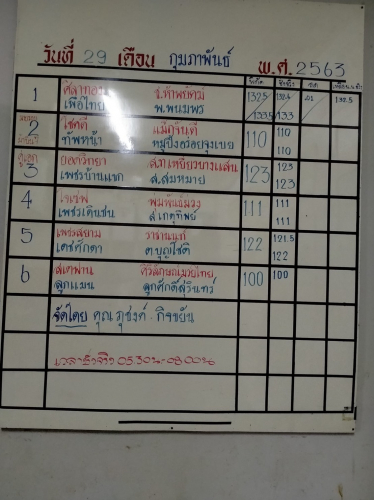 วันที่ 29 เดือน กุมภาพันธ์ พ.ศ. 2563
1 ศิลาทอง จ.ทำพรัตน์ 132.5 132.4 .01 132.5
เพื่อไทย พ.พนมพร 133.5 133
2 โชคดี แม็กจันดี 110 110
ทัพหน้า หมูปิ้งอร่อยจุงเบย 110
คู่เอก
3 ยอดวิทยา ส.ท.เหยี่ยวบางแสน 123 123
เพชรบ้านแขก ส.สมหมาย 123
4 111 111
เพชรเดิมชน ส.เกตุทิพย์ 111
5 เพชรสยาม วารานนท์ 122 121.5
เดชศักดา ต.บุญโชติ 122
6 สะพาน ศิริลักษณ์มวยไทย 100 100
ลูกแมน ลูกศักดิ์สุรินทร์
จัดโดย คุณ ภุชงค์ . กิจขยัน
เวลาชั่งจริง 05.30น - 08.00น